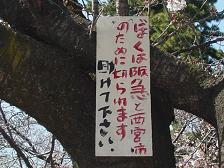 ぼくは阪急と西宮市
のために切られます
助けて下さい